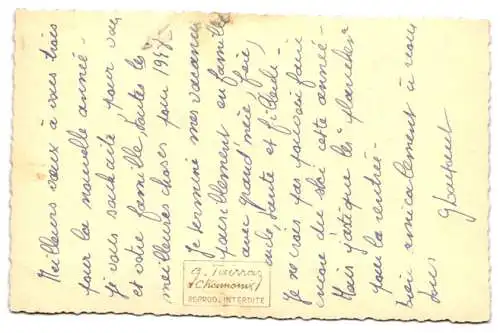 Meilleurs vœux à vous trois
pour la nouvelle année -
je vous souhaite pour vous
et votre famille, toutes les
meilleures choses pour 19
Je termine mes vacances
paisiblement en famille
avec grand'mère,
et
Je n'irais pas pouvoir faire
du ski cette année -
Mais j'attique les "planches"
pour la rentrée -
bien amicalement à vous
tous
G. Tairraz
Chamonix
REPROD. INTERDITE